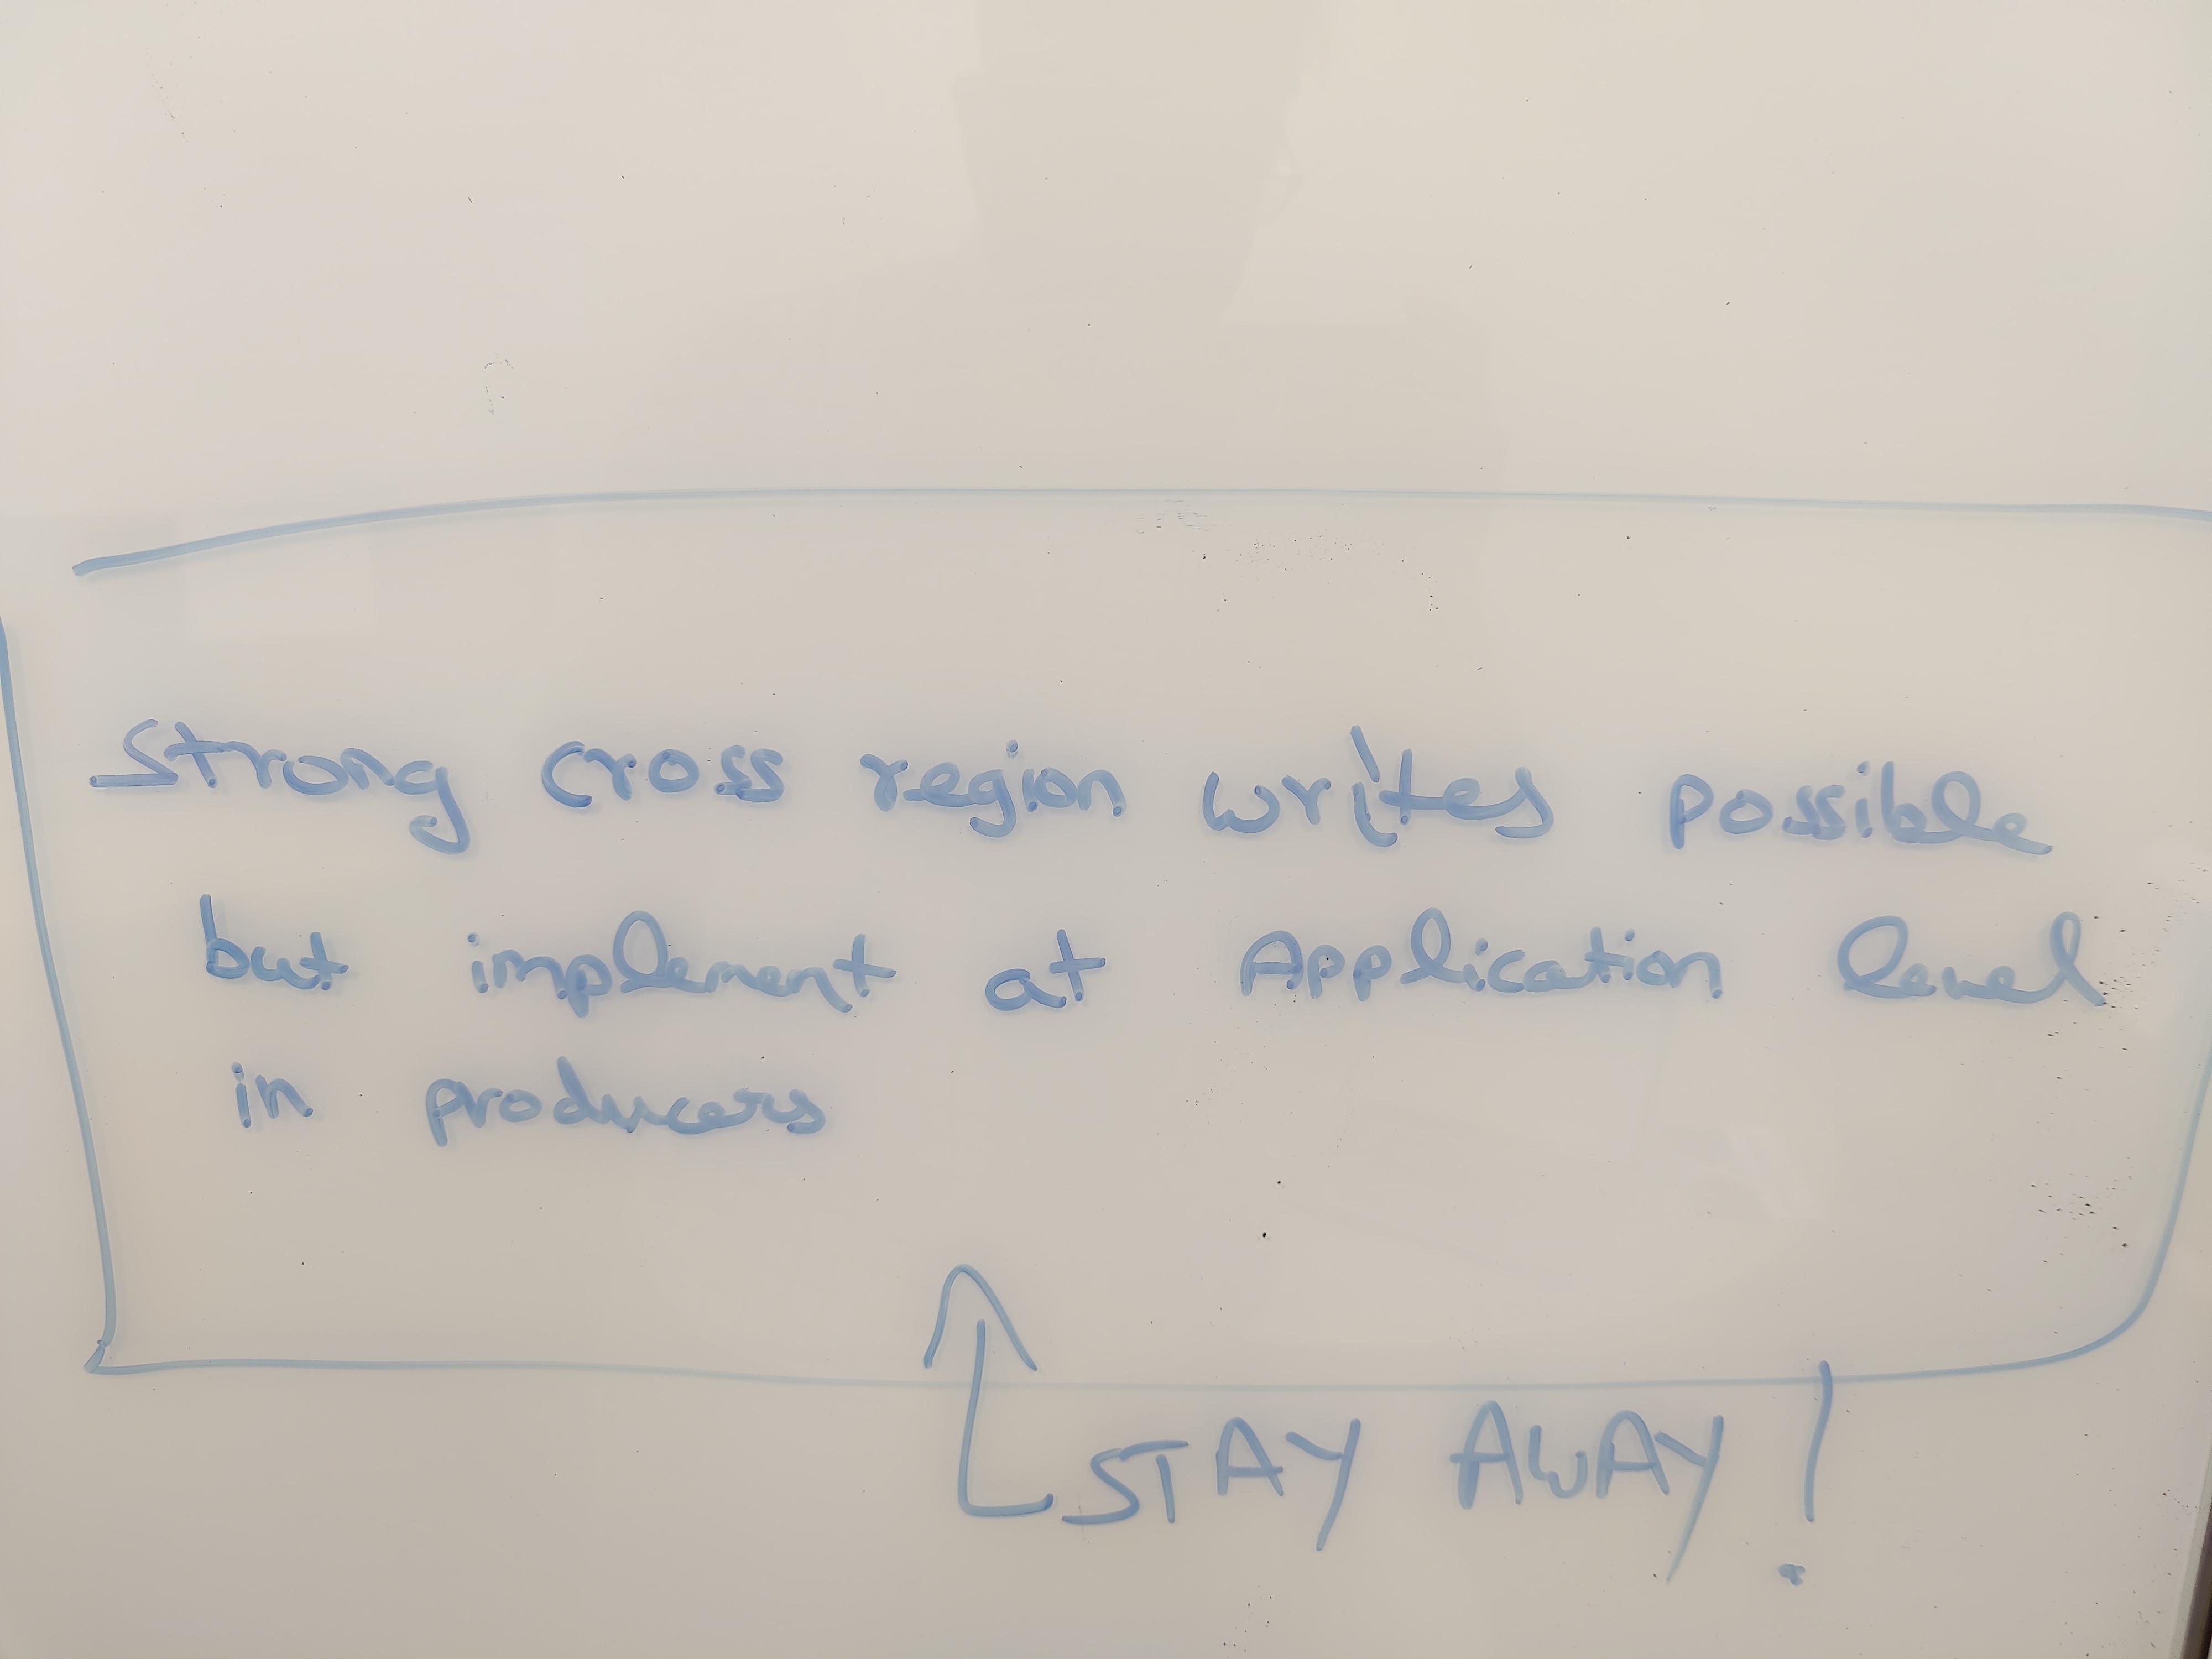 Strong cross region writes possible
but implement at Application level
in producers
STAY AWAY!